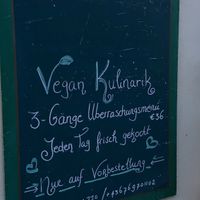 Vegan Kulinarik
3-Gänge Überraschungsmenü
€36
Jeden Tag frisch gekocht
Nur auf Vorbestellung